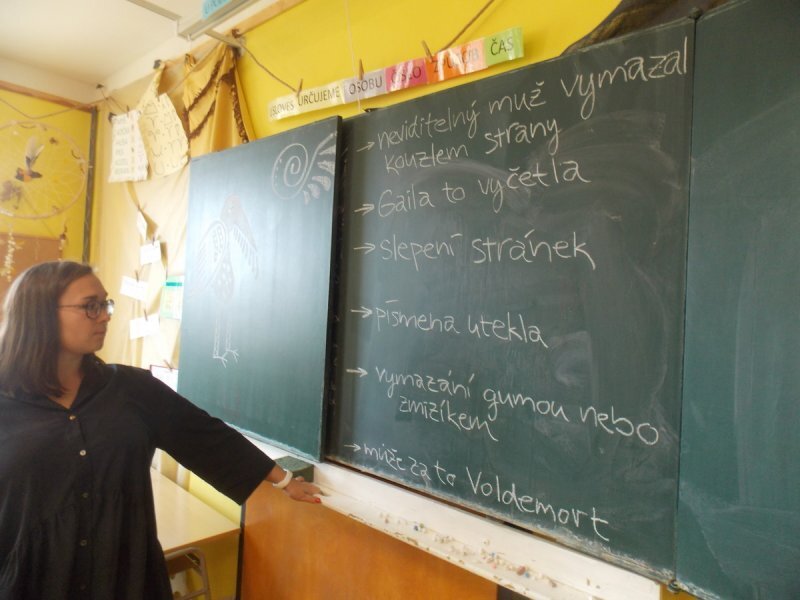 SLOVES URČUJEME OSOBU ČÍSLO ZPŮSOB ČAS
→ neviditelný muž vymazal
kouzlem strany
→ Gaila to vyčetla
→ slepení stránek
→ písmena utekla
→ vymazání gumou nebo
zmizíkem
→ může za to Voldemort